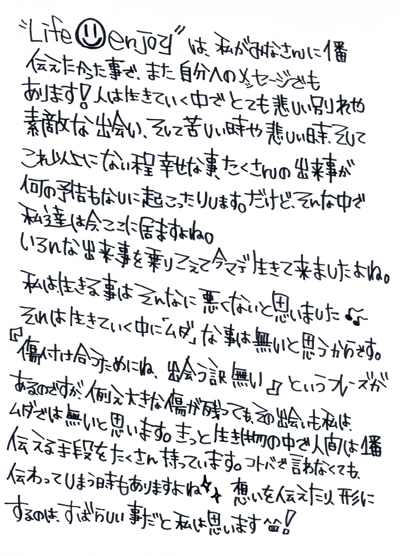 "Life☺enjoy"は、私がみなさんに1番
伝えたかった事で、また自分へのメッセージでも
あります!人は生きていく中でとても悲しい別れや
素敵な出会い、そして苦しい時や悲しい時、そして
これ以上にない程幸せな事、たくさんの出来事が
何の予告もなしに起こったりします。だけど、そんな中で
私達は今、ここに居ますよね。
いろんな出来事を乗りこえて今マデ生きて来ましたよね。
私は生きる事はそんなに悪くないと思いました♪
それは生きていく中に「ムダ」な事は無いと思うからです。
『傷付け合うためにね、出会う訳無い』というフレーズが
あるのですが、例え大きな傷が残っても、その出会いも私は、
ムダでは無いと思います。きっと生き物の中で人間は1番
伝える手段をたくさん持っています。コトバで言わなくても、
伝わってしまう時もありますよね☆ 想いを伝えたり、形に
するのは、すばらしい事だと私は思います!